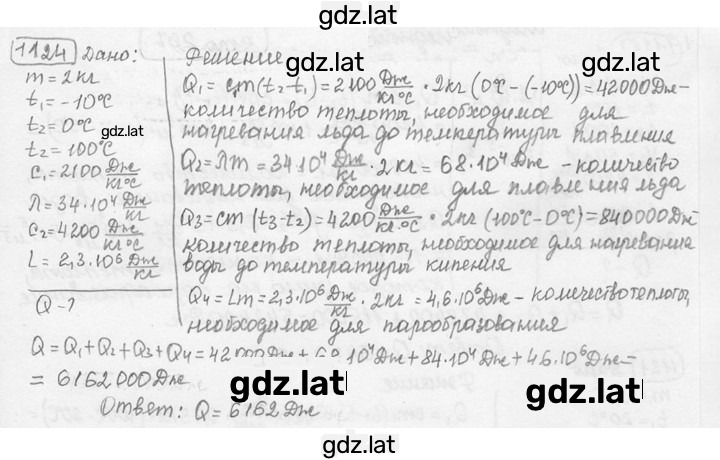 gdz.lat
1124 Дано: Решение
m = 2 кг
t₁ = -10°C
t₂ = 0°C
t₂ = 100°C
c₁ = 2100 Дж/кг°C
λ = 34·10⁴ Дж/кг
c₂ = 4200 Дж/кг°C
L = 2,3·10⁶ Дж/кг
Q - ?
Q₁ = cm(t₂-t₁) = 2100 Дж/кг·°C · 2кг (0°C - (-10°C)) = 42000 Дж -
количество теплоты, необходимое для
нагревания льда до температуры плавления
gdz.lat
Q₂ = λm = 34·10⁴ Дж/кг · 2 кг = 68·10⁴ Дж - количество
теплоты, необходимое для плавления льда
Q₃ = cm (t₃-t₂) = 4200 Дж/кг·°C · 2кг (100°C - 0°C) = 840000 Дж -
количество теплоты, необходимое для нагревания
воды до температуры кипения
Q₄ = Lm = 2,3·10⁶ Дж/кг · 2 кг = 4,6·10⁶ Дж - количество теплоты,
необходимое для парообразования
Q = Q₁ + Q₂ + Q₃ + Q₄ = 42000 Дж + 68·10⁴ Дж + 84·10⁴ Дж + 4,6·10⁶ Дж =
= 6162000 Дж
gdz.lat gdz.lat
Ответ: Q = 6162 Дж
gdz.lat